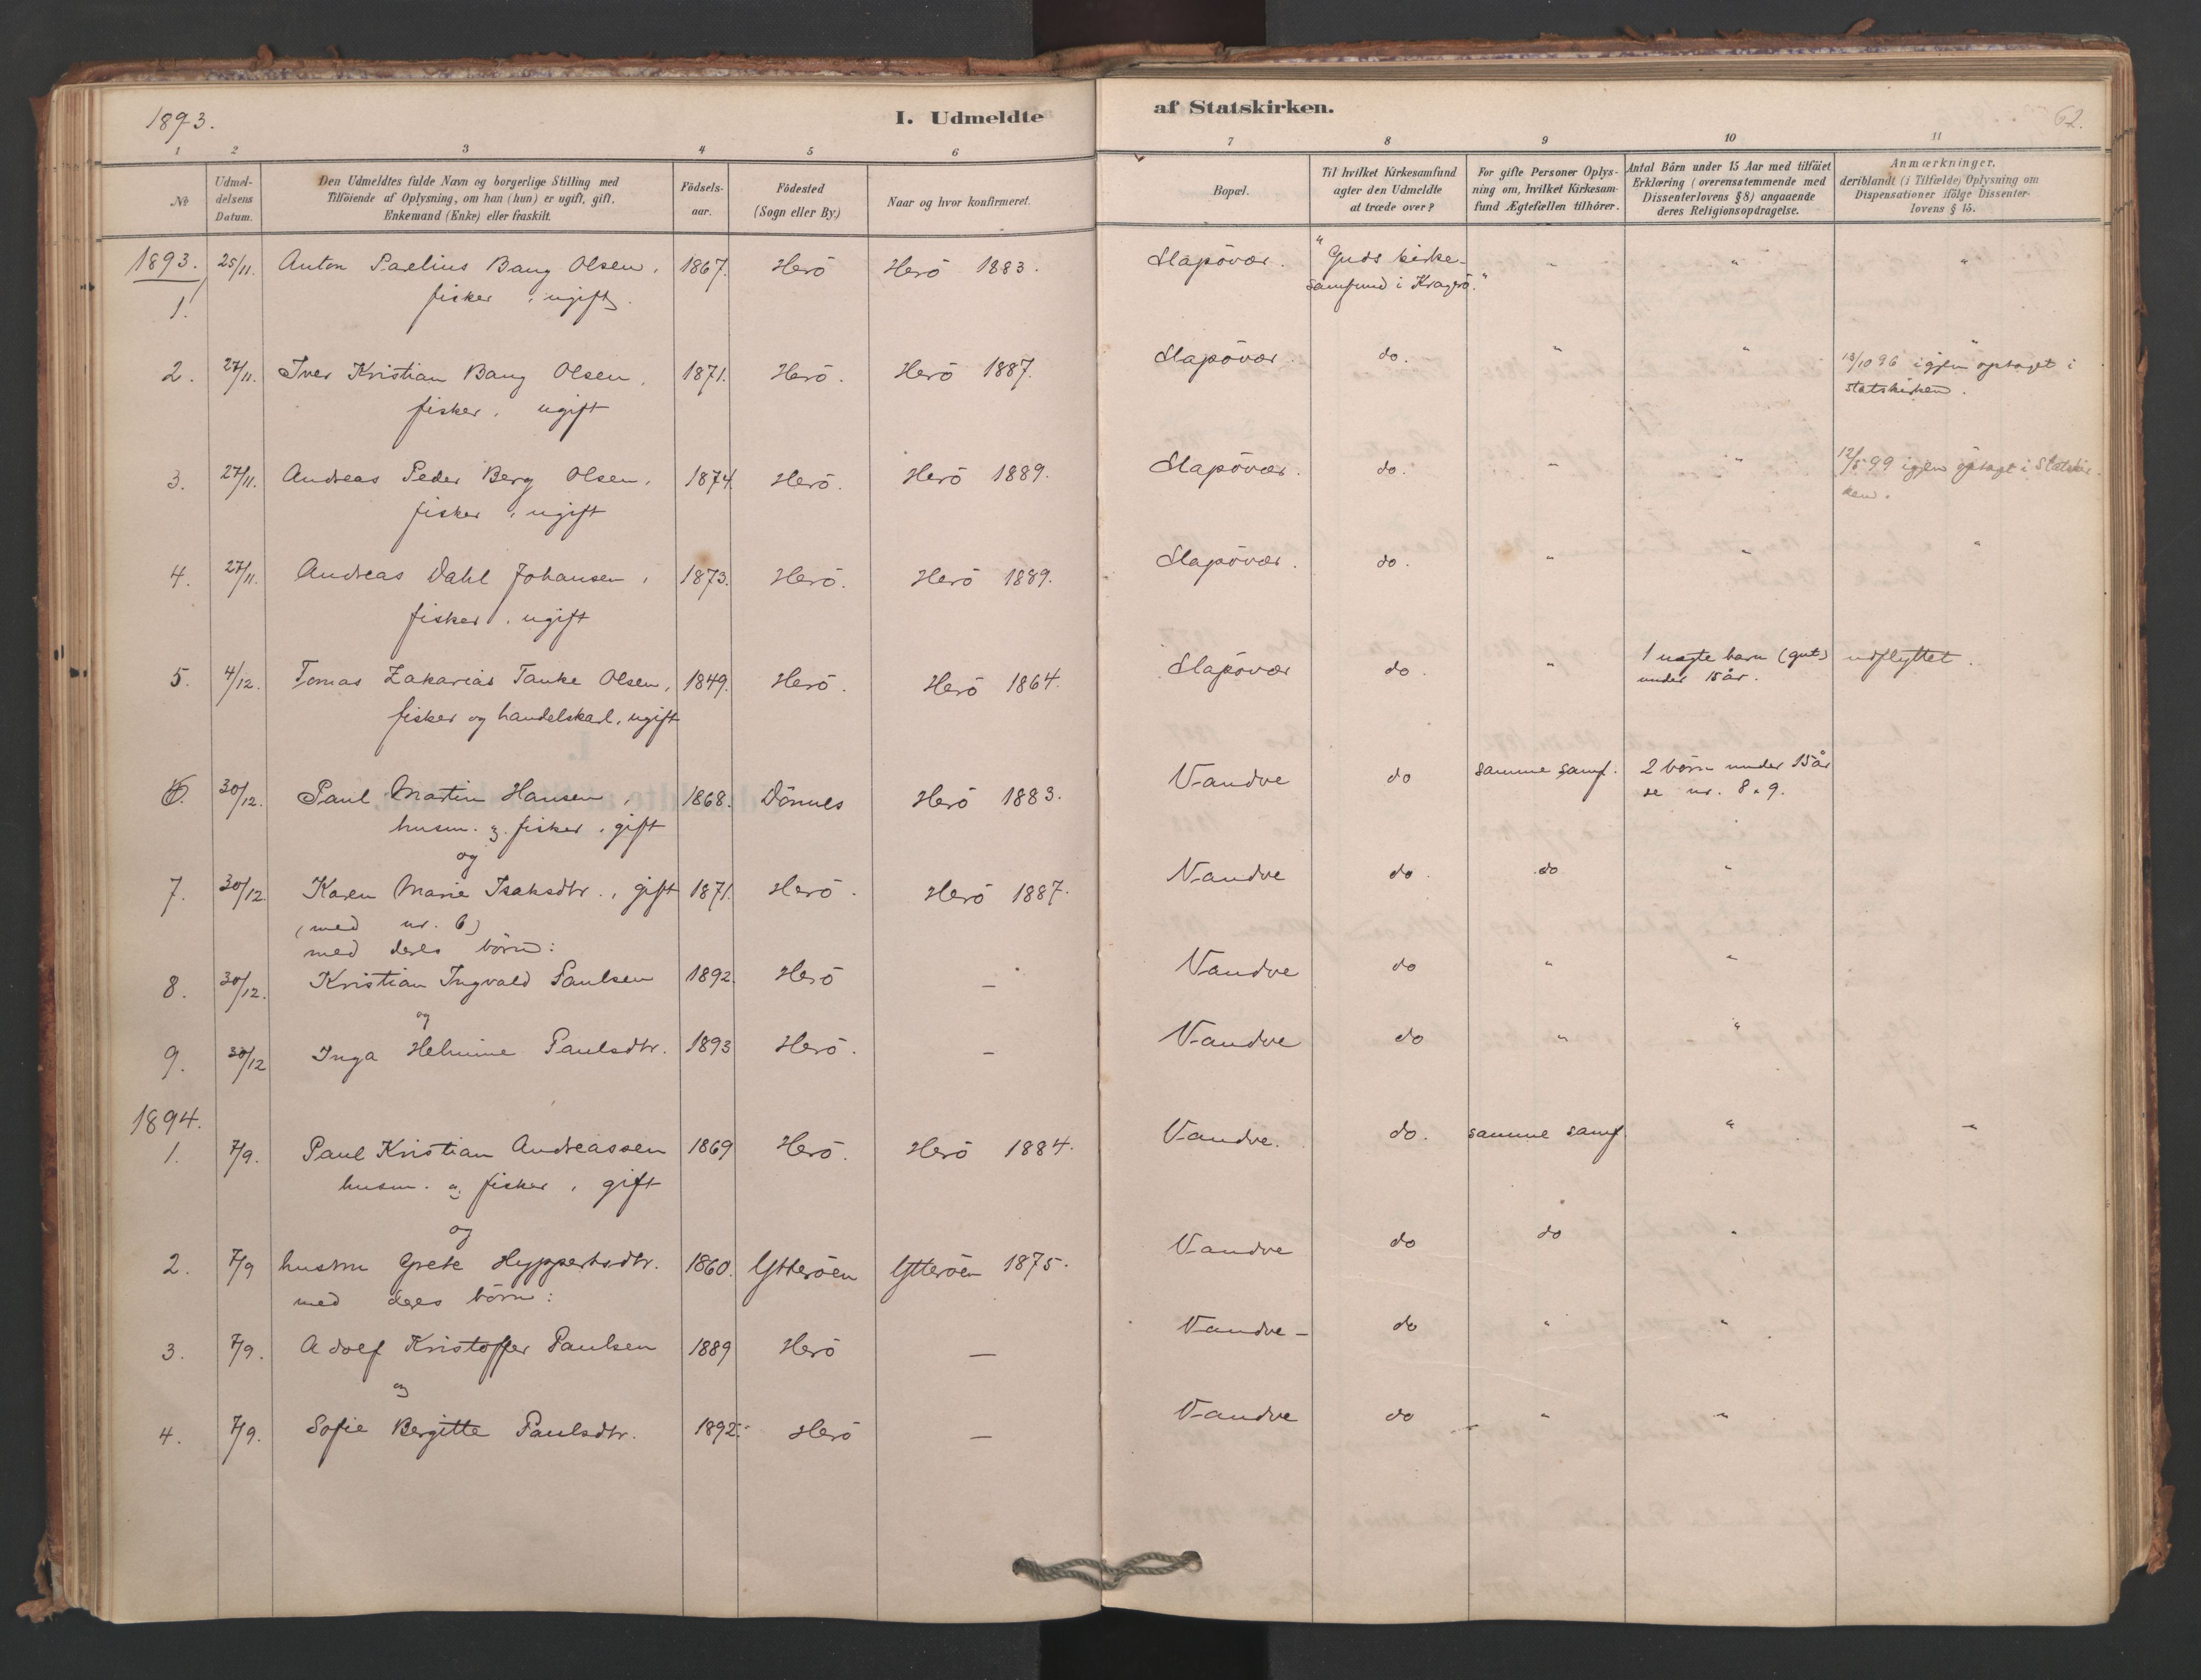 1893.
I. Udmeldte af Statskirken.
62.
1 2 3 4 5 6 7 8 9 10 11
No
Udmeldelsens Datum.
Den Udmeldtes fulde Navn og borgerlige Stilling med
Tilföiende af Oplysning, om han (hun) er ugift, gift,
Enkemand (Enke) eller fraskilt.
Födselsaar.
Födested
(Sogn eller By.)
Naar og hvor konfirmeret.
Bopæl.
Til hvilket Kirkesamfund
agter den Udmeldte
at træde over?
For gifte Personer Oplysning om, hvilket Kirkesamfund Ægtefællen tilhörer.
Antal Börn under 15 Aar med tilföiet
Erklæring (overensstemmende med
Dissenterlovens § 8) angaaende
deres Religionsopdragelse.
Anmærkninger,
deriblandt (i Tilfælde) Oplysning om
Dispensationer ifölge Dissenterlovens § 15.
1893. 25/11. Anton Parelius Bang Olsen, 1867. Herö Herö 1883. Slapövær. "Guds kirke- " " "
1. fisker, ugift. samfund i Kragerö."
2. 27/11. Iver Kristian Bang Olsen, 1871. Herö. Herö 1887. Slapövær. do. " " 13/10 96 igjen optaget i
fisker, ugift statskirken.
3. 27/11. Andreas Peder Berg Olsen, 1874. Herö. Herö 1889. Slapövær. do. " " 12/5 99 igjen optaget i Statskir-
fisker, ugift ken.
4. 27/11. Andreas Dahl Johansen, 1873. Herö. Herö 1889. Slapövær. do. " " "
fisker, ugift
5. 4/12. Tomas Zakarias Tanke Olsen, 1849. Herö. Herö 1864. Slapövær do. " 1 uægte barn (gut) udflyttet.
fisker og handelskarl, ugift under 15 år.
6. 30/12. Paul Martin Hansen, 1868. Dönnes Herö 1883. Vandve do samme samf. 2 börn under 15 år
husm. og fisker, gift se nr. 8 & 9.
og
7. 30/12. Karen Marie Isaksdtr., gift 1871. Herö. Herö 1887. Vandve do. do "
(med nr. 6)
med deres börn:
8. 30/12. Kristian Ingvald Paulsen 1892. Herö — Vandve do " "
og
9. 30/12 Inga Helmine Paulsdtr. 1893 Herö. — Vandve do " "
1894.
1. 7/9. Paul Kristian Andreassen 1869 Herö. Herö 1884. Vandve. do. samme samf. " "
husm. og fisker, gift
og
2. 7/9 hustru Grete Hyppertsdtr. 1860. Ytteröen Ytteröen 1875. Vandve do do "
med deres börn:
3. 7/9. Adolf Kristoffer Paulsen 1889 Herö — Vandve - do " "
og
4. 7/9. Sofie Bergitte Paulsdtr. 1892. Herö — Vandve do " "